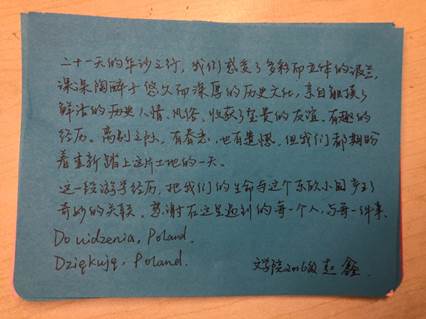 二十一天的华沙之行，我们感受了多彩而立体的波兰，
深深陶醉于悠久而深厚的历史文化，亲自触摸了
鲜活的历史人情、风俗、收获了宝贵的友谊、有趣的
经历。离别之际，有眷恋，也有遗憾，但我们都期盼
着重新踏上这片土地的一天。
这一段游学经历，把我们的生命与这个东欧小国产生了
奇妙的关联。感谢在这里遇到的每一个人，与每一件事。
Do widzenia, Poland.
Dziękuję, Poland.
文学院2016级 赵鑫